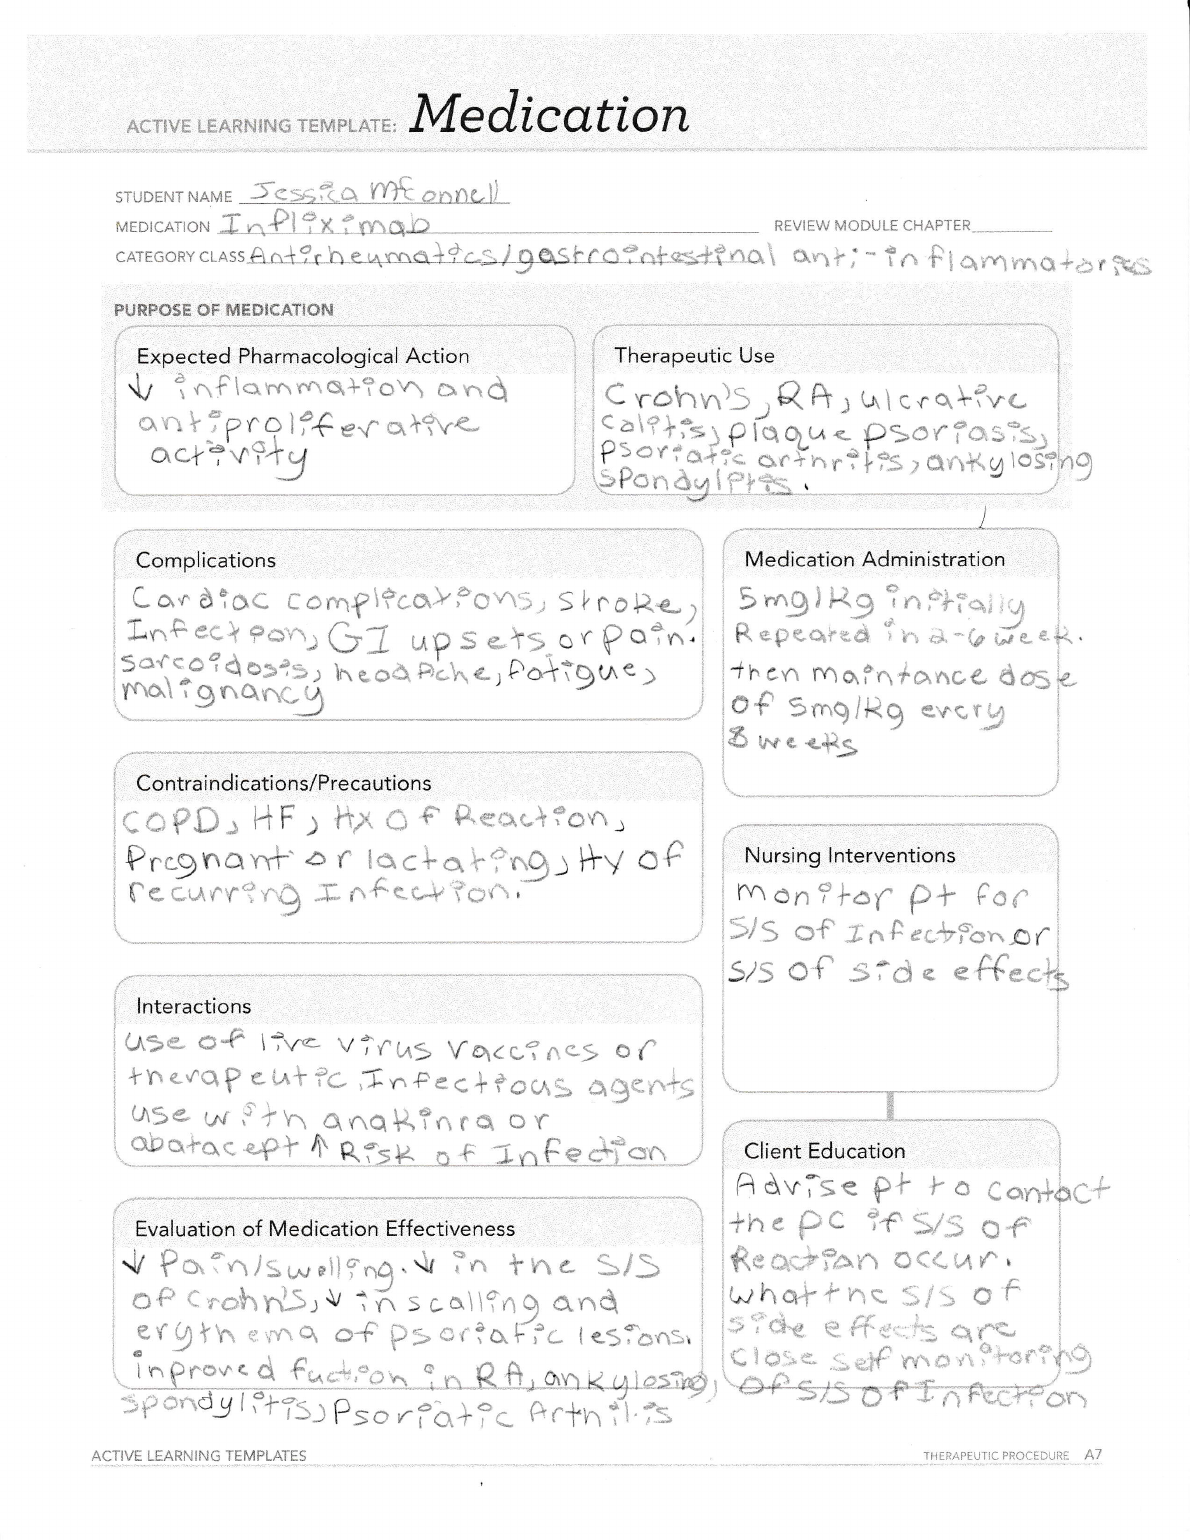 ACTIVE LEARNING TEMPLATE: Medication
STUDENT NAME Jessica McConnell
MEDICATION Infliximab
REVIEW MODULE CHAPTER
CATEGORY CLASS Antirheumatics/gastrointestinal anti-inflammatories
PURPOSE OF MEDICATION
Expected Pharmacological Action
↓ inflammation and
antiproliferative
activity
Therapeutic Use
Crohn's, RA, ulcrative
calitis, plaque psoriasis,
psoriatic arthritis, ankylosing
spondylitis.
Complications
Cardiac complications, stroke,
Infection, GI upsets or pain.
sarcoidosis, headache, fatigue,
malignancy
Medication Administration
5mg/kg initially
Repeated in 2-6 week.
then maintance dose
of 5mg/kg every
8 weeks
Contraindications/Precautions
COPD, HF, Hx of Reaction,
Pregnant or lactating, Hy of
recurring Infection.
Nursing Interventions
monitor pt for
S/S of Infection or
S/S of side effects
Interactions
use of live virus vaccines or
therapeutic Infectious agents
use with anakinra or
abatacept ↑ Risk of Infection
Client Education
Advise pt to contact
the PC if S/S of
Reaction occur.
what the S/S of
side effects are
close self monitoring
of S/S of Infection
Evaluation of Medication Effectiveness
↓ Pain/swelling. ↓ in the S/S
of Crohn's, ↓ in scalling and
erythema of psoriatic lesions.
inproved fuction in RA, ankylosing,
spondylitis, Psoriatic Arthritis
ACTIVE LEARNING TEMPLATES
THERAPEUTIC PROCEDURE A7